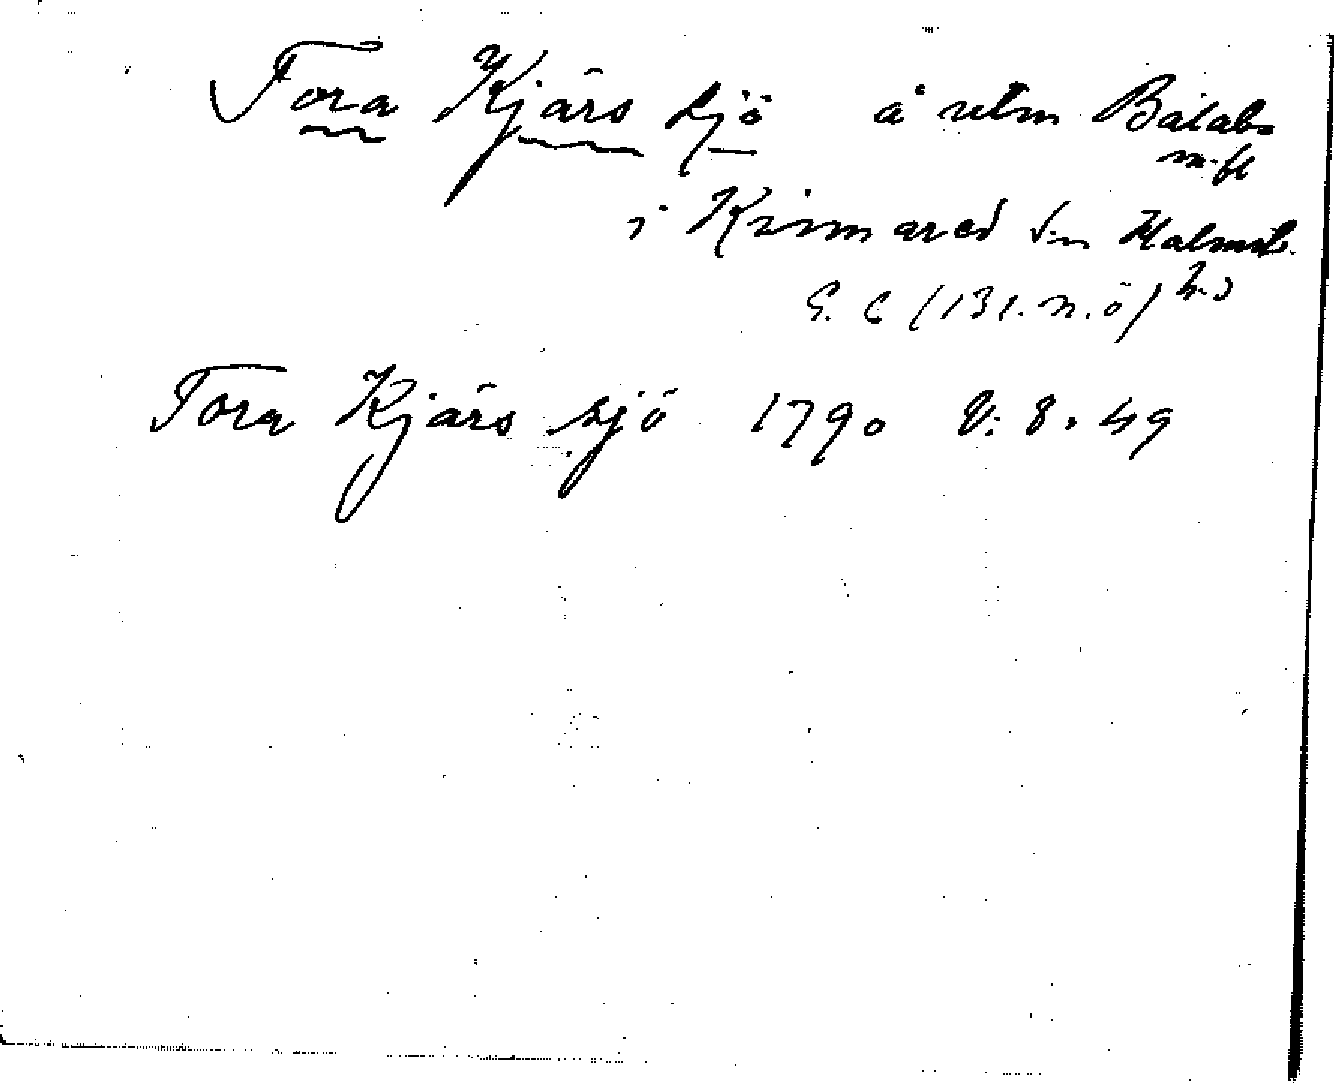 Tora Kjärs sjö å utm Bålabo
m.fl
i Krinnared sn Halmst.
h.d
G. C (131. n. ö)
Tora Kjärs sjö 1790 V: 8. 49